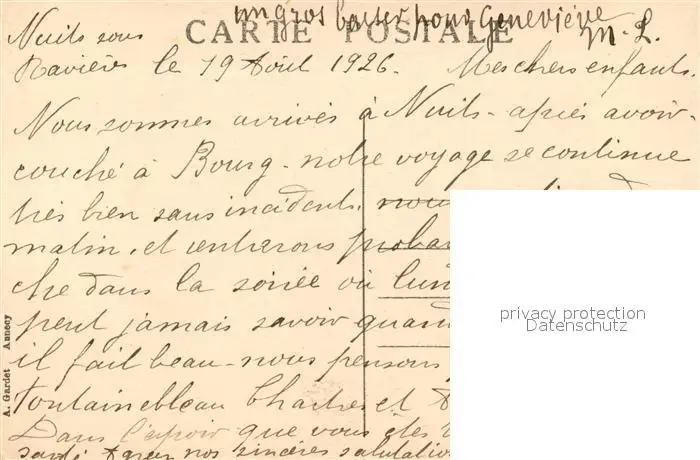 un gros baiser pour Geneviève
M. L.
CARTE POSTALE
Nuits sous
Ravières le 19 Août 1926. Mes chers enfants.
Nous sommes arrivés à Nuits - après avoir
couché à Bourg - notre voyage se continue
très bien sans incidents. nous
matin, et rentrerons
che dans la soirée où lun
peut jamais savoir quand
il fait beau - nous pensons
Fontainebleau Chartres et
Dans l'espoir que vous êtes
santé nos sincères salutatio
A. Gardet Annecy
privacy protection
Datenschutz